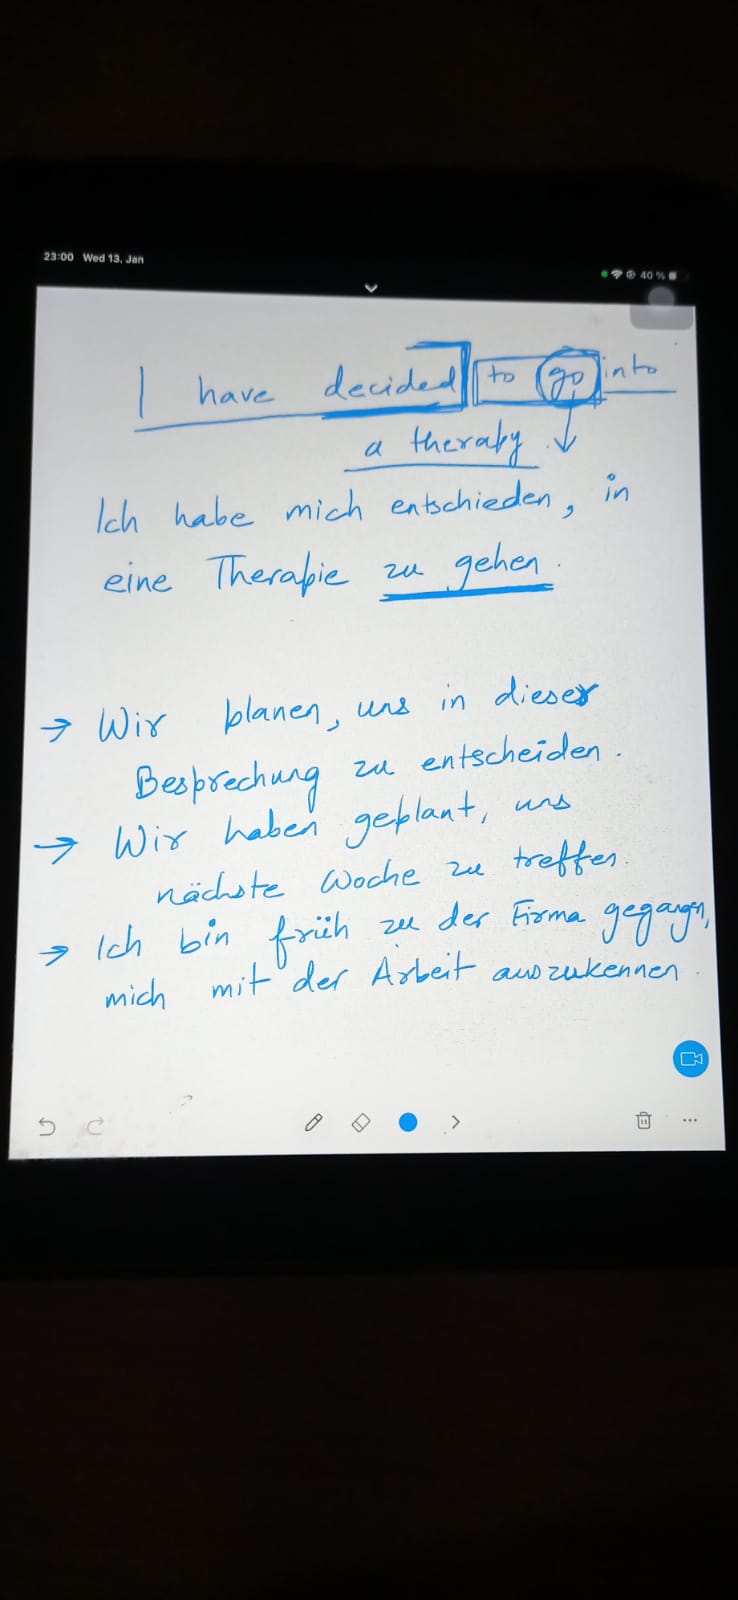 23:00 Wed 13. Jan
40 %
I have decided to go into
a therapy
Ich habe mich entschieden, in
eine Therapie zu gehen.
→ Wir planen, uns in dieser
Besprechung zu entscheiden.
→ Wir haben geplant, uns
nächste Woche zu treffen.
→ Ich bin früh zu der Firma gegangen,
mich mit der Arbeit auszukennen.